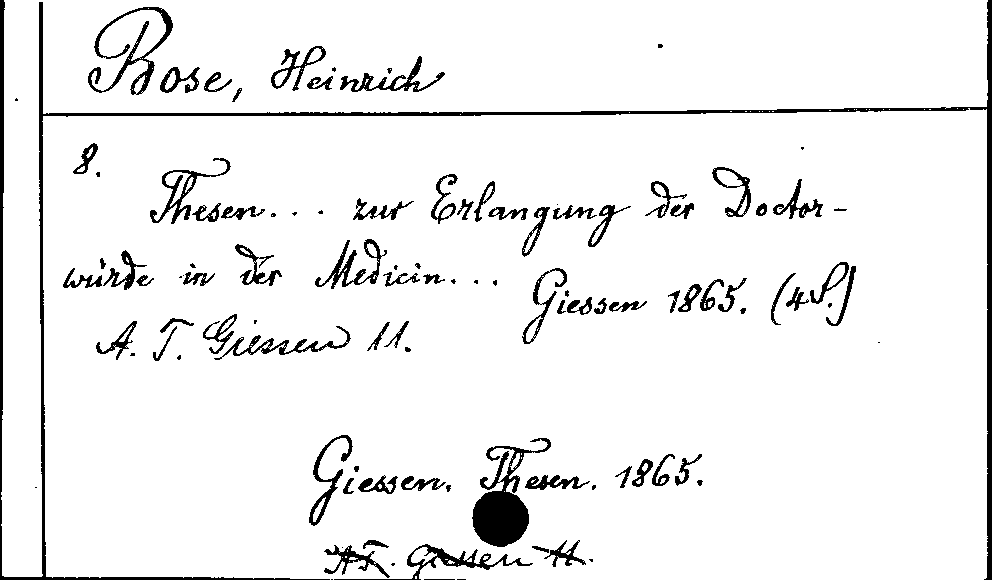 Bose, Heinrich
8.
Thesen... zur Erlangung der Doctor-
würde in der Medicin... Giessen 1865. (4 S.)
A. T. Giessen 11.
Giessen. Thesen. 1865.
A.T. Giessen 11.